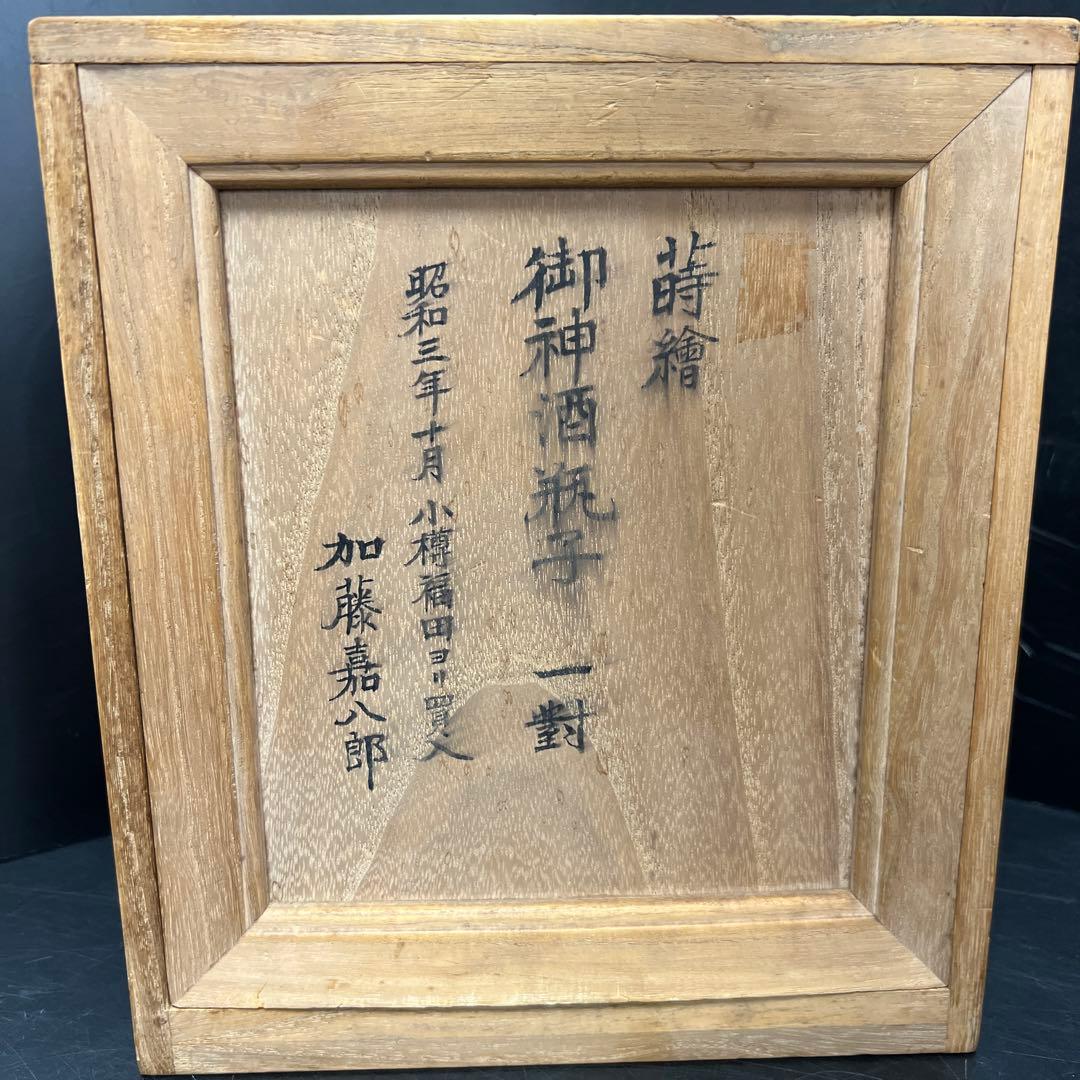 蒔繪
御神酒瓶子 一對
昭和三年十月 小樽福田ヨリ買入
加藤嘉八郎